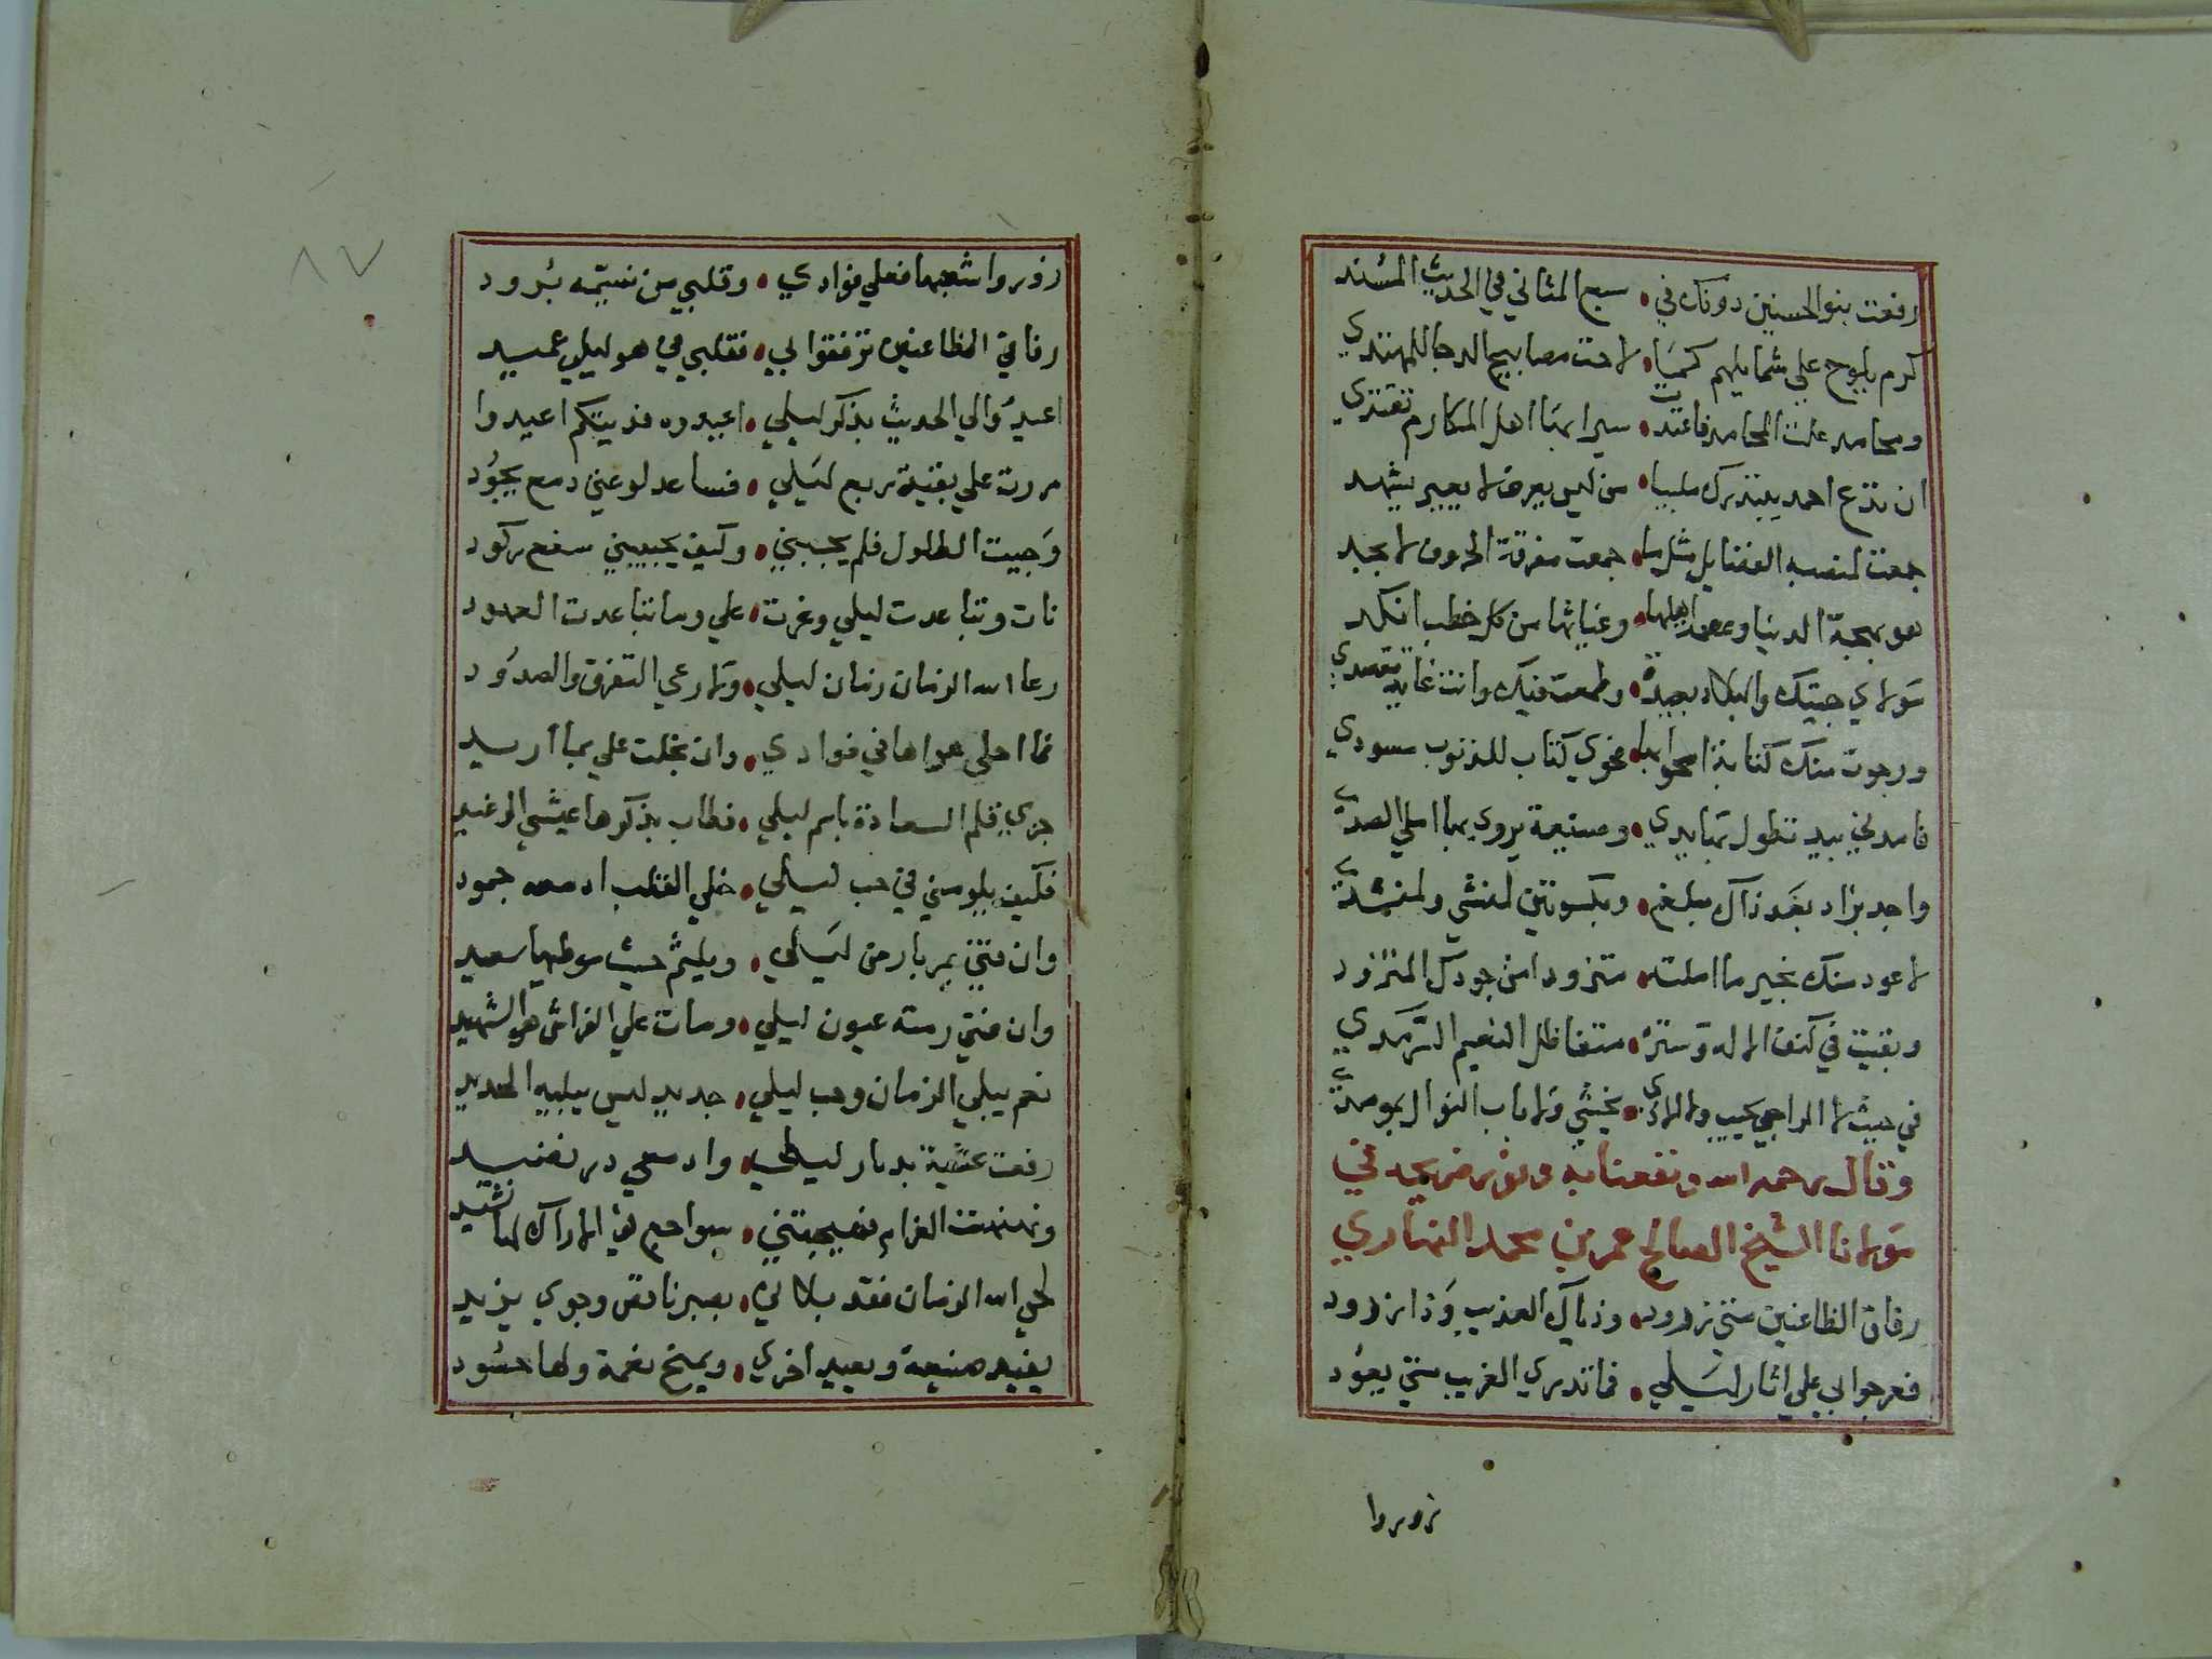 رفعت بنو الحسنين دونك في • سبع المثاني في الحديث المسند
كرم يلوح علي شمايلهم كما • لاحت مصابيح الدجا للمهتدي
ومحامد علت المحامد فاغتدت • سيرا بها اهل المكارم تقتدي
ان تدع احمد يبتدرك ملبيا • من ليس يعرف لا بغير تشهد
جمعت لمنصبه الفضايل مثل ما • جمعت مفرقة الحروف لابجد
هو بهجة الدنيا وعصمة اهلها • وغياثها من كل خطب انكد
مولاي جيتك والبلاد بعيدة • وطمعت فيك وانت غاية مقصدي
ورجوت منك كتابة امحوا بها • فحوي كتاب للذنوب مسودي
فامدني بيد تطول بها يدي • وصنيعة يروي بها املي الصدي
واجد بزاد بعد ذاك مبلغ • وبكسوتين لمنشي ولمنشدي
لاعود منك بخير ما املته • متزودا من جودك المتزود
وبقيت في كنف الاله وستره • متفيا ظل النعيم السرمدي
في حيث لا الراجي يخيب ولا الاذي • يخشي ولا باب النوال بموصد
وقال رحمه الله ونفعنا به ونور ضريحه في
مولانا الشيخ الصالح عمر بن محمد النهاري
رفاق الظاعنين متي نرود • وذياك العذيب وذا زرود
فعرجوا بي علي اثار ليلي • فما تدري الغريب متي يعود
زوروا
٨٧
زوروا شعبها فعلي فوادي • وقلبي من نسيمه برود
رفاق الظاعنين ترفقوا بي • فقلبي في هو ليلي عميد
اعيدوا لي الحديث بذكر ليلي • اعيدوه فديتكم اعيدوا
مررت علي بقية ربع ليلي • فساعد لوعتي دمع يجود
وجيت الطلول فلم يجبني • وكيف يجيبني سفع ركود
نات وتباعدت ليلي وغرت • علي وما تباعدت العهود
رعا الله الزمان زمان ليلي • ولا رعي التفرق والصدود
فما احلي هواها في فوادي • وان بخلت علي بما اريد
جري قلم السعادة باسم ليلي • فطاب بذكرها عيشي الرغيد
فكيف يلومني في حب ليلي • خلي القلب ادمعه جمود
وان فتي يمر بارض ليلي • ويلثم حيث موطيها سعيد
وان فتي رمته عيون ليلي • ومات علي الفراش هو الشهيد
نعم يبلي الزمان وحب ليلي • جديد ليس يبليه الجديد
رفعت عشية بديار ليلي • وادمعي در نضيد
ونهنهت الغرام فهيجتني • سواجع في الاراك لها نشيد
لحي الله الزمان فقد بلاني • بصبر ناقص وجوي يزيد
يفيد صنيعة ويعيد اخري • ويمنح نعمة ولها حسود